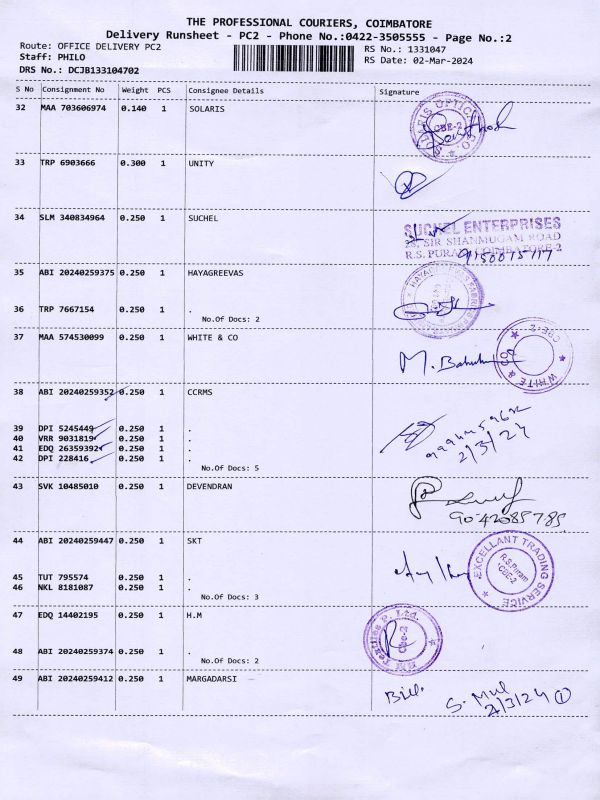 THE PROFESSIONAL COURIERS, COIMBATORE
Delivery Runsheet - PC2 - Phone No.:0422-3505555 - Page No.:2
Route: OFFICE DELIVERY PC2
RS No.: 1331047
Staff: PHILO
RS Date: 02-Mar-2024
DRS No.: DCJB133104702
S No Consignment No Weight PCS Consignee Details Signature
32 MAA 703606974 0.140 1 SOLARIS
CBE-2
33 TRP 6903666 0.300 1 UNITY
34 SLM 340834964 0.250 1 SUCHEL
SUCHEL ENTERPRISES
SIR SHANMUGAM ROAD
R.S. PURAM, COIMBATORE-2
35 ABI 20240259375 0.250 1 HAYAGREEVAS
36 TRP 7667154 0.250 1 .
No.Of Docs: 2
37 MAA 574530099 0.250 1 WHITE & CO
WHITE & CO
CBE-2
38 ABI 20240259352 0.250 1 CCRMS
39 DPI 5245449 0.250 1 .
40 VRR 9031819 0.250 1 .
41 EDQ 26359392 0.250 1 .
42 DPI 228416 0.250 1 .
2/3/24
No.Of Docs: 5
43 SVK 10485010 0.250 1 DEVENDRAN
9042085785
44 ABI 20240259447 0.250 1 SKT
EXCELLANT TRADING SERVICE
R.S.Puram
CBE-2
45 TUT 795574 0.250 1 .
46 NKL 8181087 0.250 1 .
No.Of Docs: 3
47 EDQ 14402195 0.250 1 H.M
HM Textiles P. Ltd.
Cbe-2
48 ABI 20240259374 0.250 1 .
No.Of Docs: 2
49 ABI 20240259412 0.250 1 MARGADARSI
Bill.
2/3/24 1